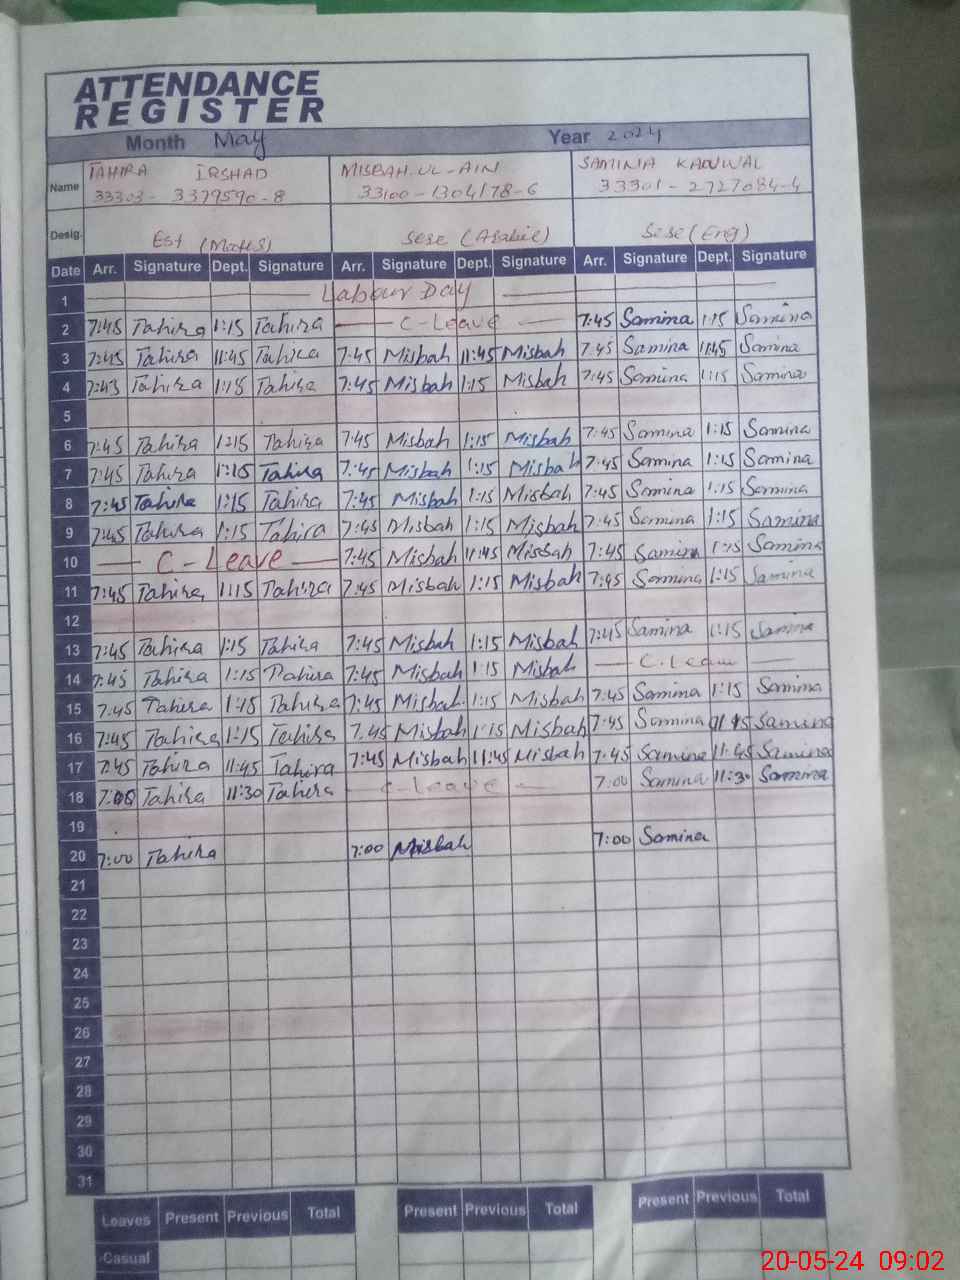 ATTENDANCE
REGISTER
Month May Year 2024
Name TAHIRA IRSHAD MISBAH-UL-AIN SAMINA KANWAL
33303-3379590-8 33100-1304178-6 33301-2727084-4
Desig. Est (Maths) sese (Arabic) Sese (Eng)
Date Arr. Signature Dept. Signature Arr. Signature Dept. Signature Arr. Signature Dept. Signature
1 Labour Day
2 7:45 Tahira 1:15 Tahira C-Leave 7:45 Samina 1:15 Samina
3 7:45 Tahira 11:45 Tahira 7:45 Misbah 11:45 Misbah 7:45 Samina 11:45 Samina
4 7:45 Tahira 1:15 Tahira 7:45 Misbah 1:15 Misbah 7:45 Samina 1:15 Samina
5
6 7:45 Tahira 1:15 Tahira 7:45 Misbah 1:15 Misbah 7:45 Samina 1:15 Samina
7 7:45 Tahira 1:15 Tahira 7:45 Misbah 1:15 Misbah 7:45 Samina 1:15 Samina
8 7:45 Tahira 1:15 Tahira 7:45 Misbah 1:15 Misbah 7:45 Samina 1:15 Samina
9 7:45 Tahira 1:15 Tahira 7:45 Misbah 1:15 Misbah 7:45 Samina 1:15 Samina
10 C-Leave 7:45 Misbah 11:45 Misbah 7:45 Samina 1:15 Samina
11 7:45 Tahira 1:15 Tahira 7:45 Misbah 1:15 Misbah 7:45 Samina 1:15 Samina
12
13 7:45 Tahira 1:15 Tahira 7:45 Misbah 1:15 Misbah 7:45 Samina 1:15 Samina
14 7:45 Tahira 1:15 Tahira 7:45 Misbah 1:15 Misbah C.Leave
15 7:45 Tahira 1:15 Tahira 7:45 Misbah 1:15 Misbah 7:45 Samina 1:15 Samina
16 7:45 Tahira 1:15 Tahira 7:45 Misbah 1:15 Misbah 7:45 Samina 1:15 Samina
17 7:45 Tahira 11:45 Tahira 7:45 Misbah 11:45 Misbah 7:45 Samina 11:45 Samina
18 7:00 Tahira 11:30 Tahira C-Leave 7:00 Samina 11:30 Samina
19
20 7:00 Tahira 7:00 Misbah 7:00 Samina
21
22
23
24
25
26
27
28
29
30
31
Leaves Present Previous Total Present Previous Total Present Previous Total
Casual
20-05-24 09:02